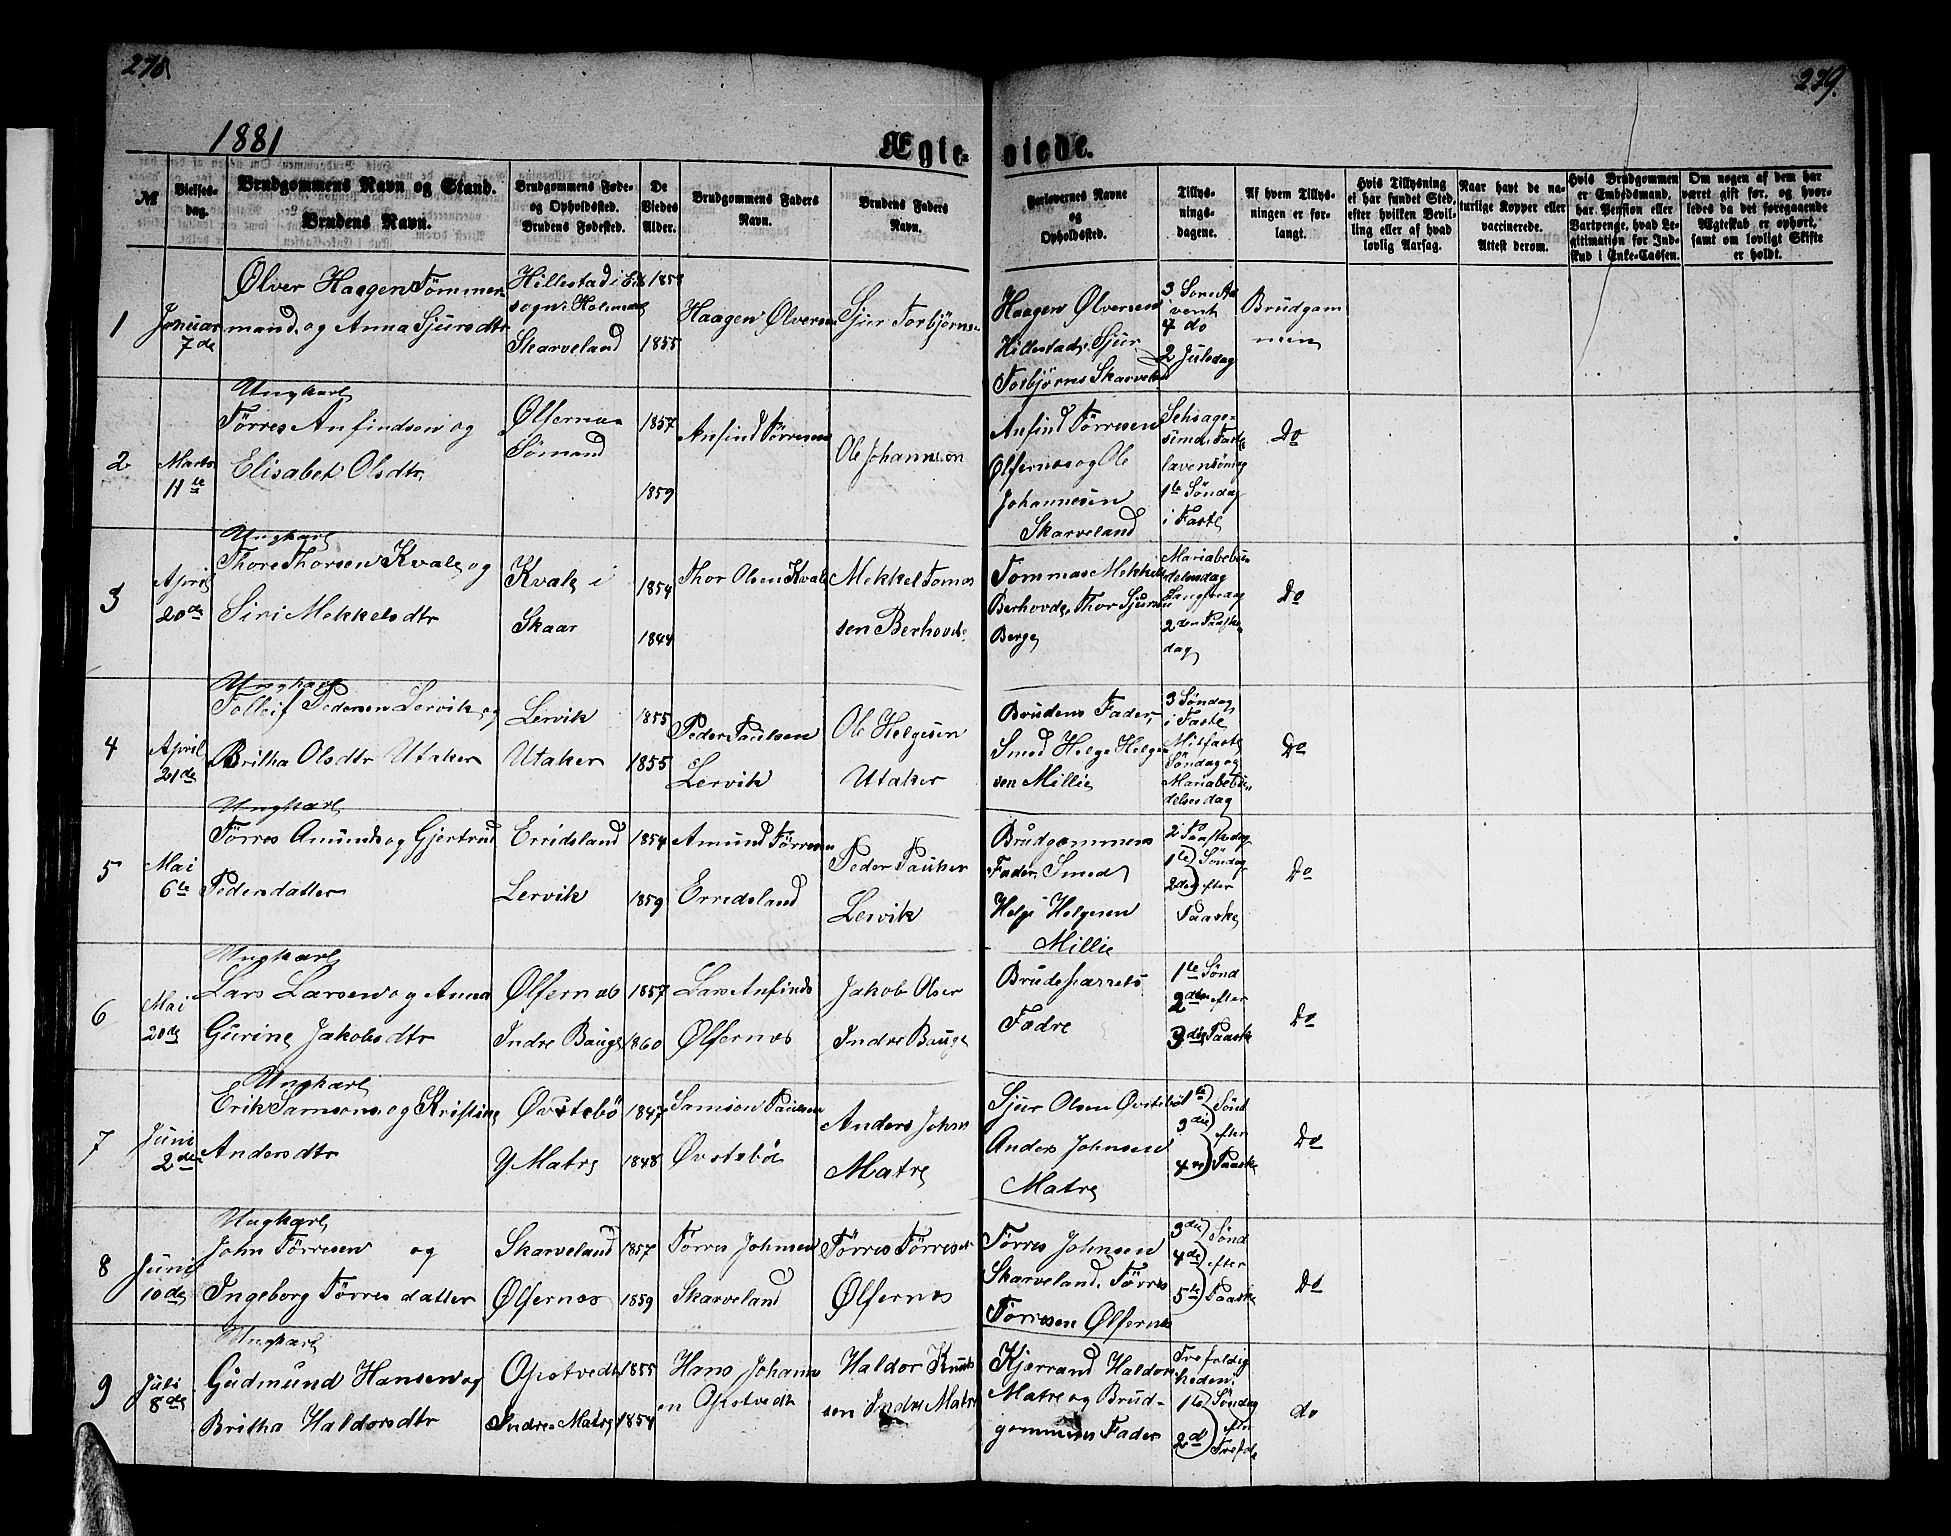 278
279.
1881
Ægte-
viede.
№
Vielses-
dag.
Brudgommens Navn og Stand.
Brudens Navn.
Brudgommens Føde-
og Opholdssted.
Brudens Fødested.
De
Viedes
Alder.
Brudgommens Faders
Navn.
Brudens Faders
Navn.
Forlovernes Navne
og
Opholdssted.
Tillys-
nings-
dagene.
Af hvem Tillys-
ningen er for-
langt.
Hvis Tillysning
ei har fundet Sted,
efter hvilken Bevil-
ling eller af hvad
lovlig Aarsag.
Naar havt de na-
turlige Kopper eller
vaccinerede.
Attest derom.
Hvis Brudgommen
er Embedsmand,
har Pension eller
Vartpenge, hvad Le-
gitimation for Ind-
skud i Enke-Cassen.
Om nogen af dem har
været gift før, og hvor-
ledes da det foregaaende
Ægteskab er ophørt,
samt om lovligt Skifte
er holdt.
1
Januar
7de
Ølver Haagen Tømmer-
mand og Anna Sjursdtr
Hillestad i
sogn: Holmed
Skarveland
1858
1855
Haagen Ølversen
Sjur Torbjørns
Haagen Ølversen
Hillestad, Sjur
Torbjørns Skarveland
3 Søn Ad
vent
4 do
2 Juledag
Brudgom
men
2
Marts
11te
Ungkarl
Tørres Anfindsen og
Elisabet Olsdtr
Ølfernes
Sømand
1857
1859
Anfind Tørresen
Ole Johannson
Anfind Tørresen
Ølfernes og Ole
Johannesen
Skarveland
Seksage-
sima, Faste
lavensøndag
1te Søndag
i Faste
Do
3
April
20de
Ungkarl
Thore Thorsen Kvale og
Siri Mekkelsdtr
Kvale i
Skaar
1854
1844
Thor Olsen Kvale
Mekkel Tomas
sen Berhovde
Tommas Mekkels
Berhovde, Thor Sjursen
Berge
Mariabebu-
delsesdag
Langfredag
2den Paaske
dag
Do
4
April
21de
Ungkarl
Tolleif Pedersen Lervik og
Britha Olsdtr Utaker
Lervik
Utaker
1855
1855
Peder Paulsen
Lervik
Ole Helgesen
Utaker
Brudens Fader,
Smed Helge Helge
sen Millie
3 Søndag
i Faste
Mitfaste
Søndag og
Mariabebu
delsesdag
Do
5
Mai
6te
Ungkarl
Tørres Amunds og Gjertrud
Pedersdatter
Erridsland
Lervik
1854
1859
Amund Tørresen
Erredsland
Peder Pauker
Lervik
Brudgommens
Fader, Smed
Helge Helgesen
Millie
2 Paaskedag
1te Søndag
2den efter
Paaske
Do
6
Mai
20de
Ungkarl
Lars Larsen og Anna
Gurine Jakobsdtr
Ølfernes
Indre Bauge
1857
1860
Lars Anfinds
Ølfernes
Jakob Olsen
Indre Bauge
Brudeparrets
Fædre
1te Sønd
2den efter
3die Paaske
Do
7
Juni
2den
Ungkarl
Erik Samsons. og Kristine
Andersdtr
Øvstebö
Y Matre
1847
1848
Samson Paulsen
Øvstebö
Anders Johns
Matre
Sjur Olsen Øvstebö
Anders Johnsen
Matre
1te Sönd
3die efter
4de Paaske
Do
8
Juni
10de
Ungkarl
John Tørresen og
Ingeborg Tørresdatter
Skarveland
Ølfernes
1857
1859
Tørres Johnsen
Skarveland
Tørres Tørresen
Ølfernes
Tørres Johnsen
Skarveland, Tørres
Tørresen Ølfernes
3die Sønd
4de efter
5te Paaske
Do
9
Juli
8de
Ungkarl
Gudmund Hansen og
Britha Haldorsdtr
Opstvedt
Indre Matre
1855
1854
Hans Johanns
en Opstvedt
Haldor Knuds
sen Indre Matre
Kjerrand Haldors
Matre og Brud-
gommens Fader
Trefoldig
heden
1te Søndag
2d efter
Trefold
do